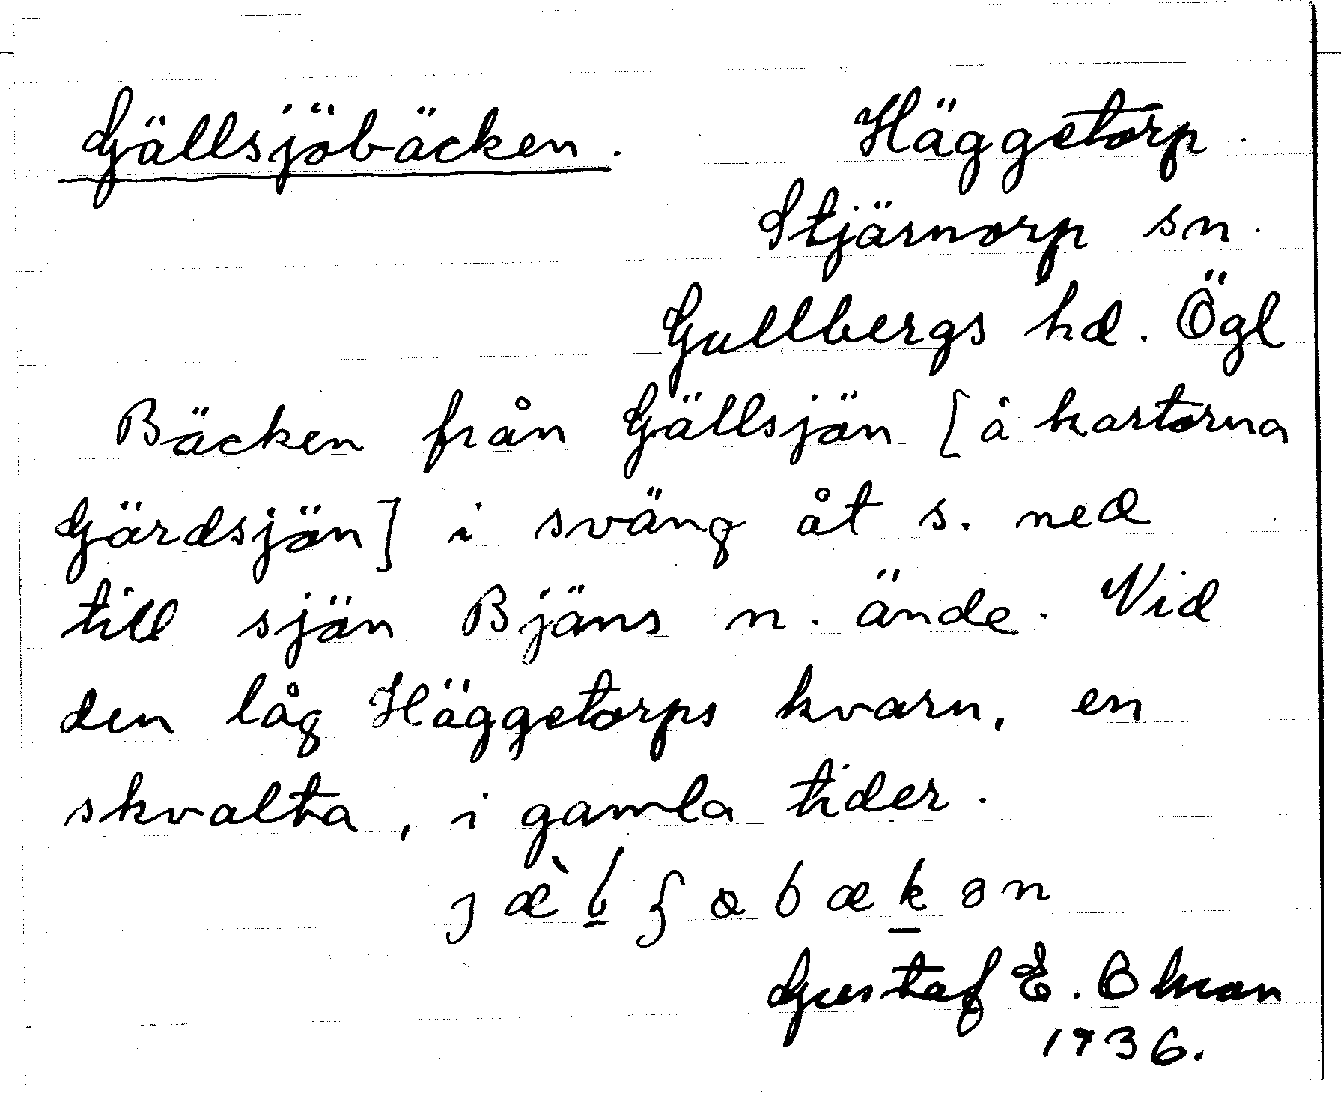 Gällsjöbäcken. Häggetorp.
Stjärnorp sn.
Gullbergs hd. Ögl
Bäcken från Gällsjön [å kartorna
Gärdsjön] i sväng åt s. ned
till sjön Bjäns n. ände. Vid
den låg Häggetorps kvarn, en
skvalta, i gamla tider.
Gustaf E. Ohman
1936.